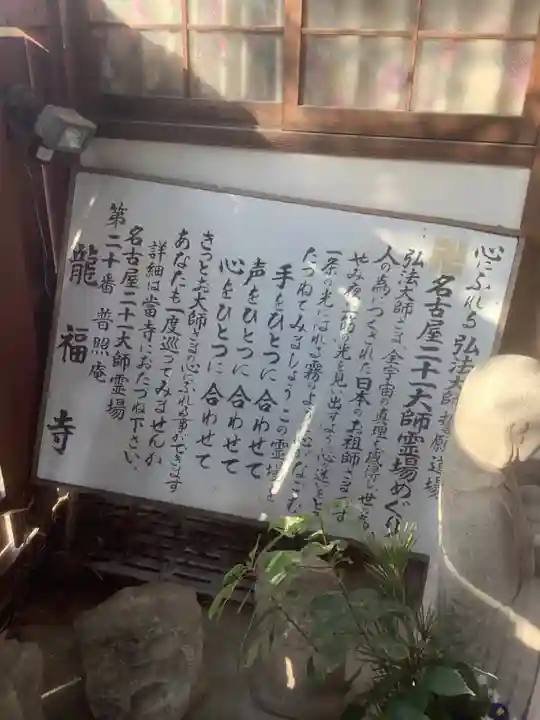 心にふれる弘法大師
道場
卍 名古屋二十一大師霊場めぐり
弘法大師さまは全宇宙の真理を感得し
人の為につくされた日本のお祖師さまです
やみ夜に一筋の光を見い出すよう心の迷をとき
一条の光にはれる霧のように心がなごむ
たづねてみましょうこの霊場を
手をひとつに合わせて
声をひとつに合わせて
心をひとつに合わせて
きっとお大師さまの心にふれる事ができます
あなたも一度巡ってみませんか
詳細は当寺におたづね下さい。
名古屋二十一大師霊場
第二十番 普照庵
龍福寺